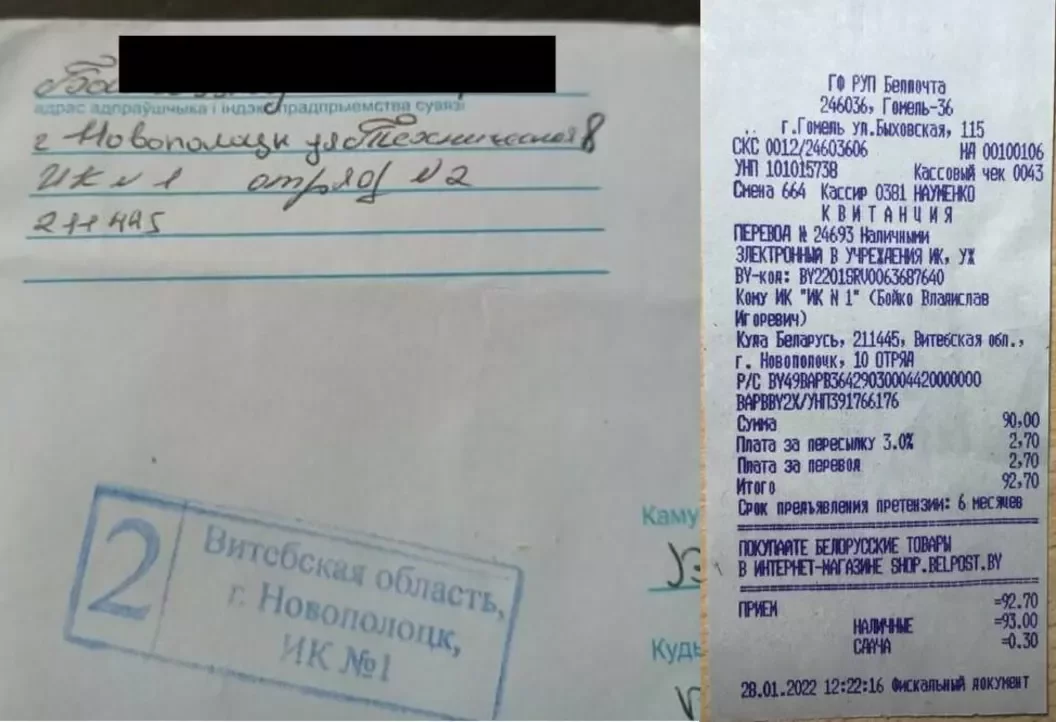 адрас адпраўшчыка і індэкс прадпрыемства сувязі
г Новополоцк ул Техническая 8
ИК №1 отряд №2
211445
2
Витебская область,
г. Новополоцк,
ИК №1
Каму
Куды
ГФ РУП Белпочта
246036, Гомель-36
г.Гомель ул.Быховская, 115
СКС 0012/24603606 НА 00100106
УНП 101015738 Кассовый чек 0043
Смена 664 Кассир 0381 НАУМЕНКО
КВИТАНЦИЯ
ПЕРЕВОД № 24693 Наличными
ЭЛЕКТРОННЫЙ В УЧРЕЖДЕНИЯ ИК, УЖ
BY-код: BY2201SRV0063687640
Кому ИК "ИК N 1" (Бойко Владислав
Игоревич)
Куда Беларусь, 211445, Витебская обл.,
г. Новополоцк, 10 ОТРЯД
Р/С BY49BAPB36429030004420000000
BAPBBY2X/УНП391766176
Сумма 90,00
Плата за пересылку 3.0% 2,70
Плата за перевод 2,70
Итого 92,70
Срок предъявления претензии: 6 месяцев
ПОКУПАЙТЕ БЕЛОРУССКИЕ ТОВАРЫ
В ИНТЕРНЕТ-МАГАЗИНЕ SHOP.BELPOST.BY
ПРИЕМ =92.70
НАЛИЧНЫЕ =93.00
СДАЧА =0.30
28.01.2022 12:22:16 Фискальный документ